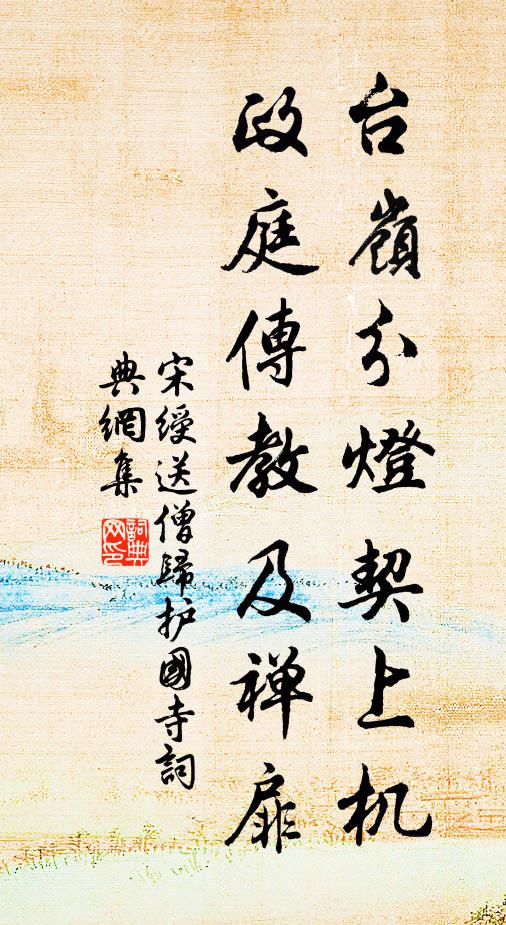 台嶺分燈契上机
政庭傳教及禅扉
宋綬送僧歸护國寺詞
典網集
詞典网印